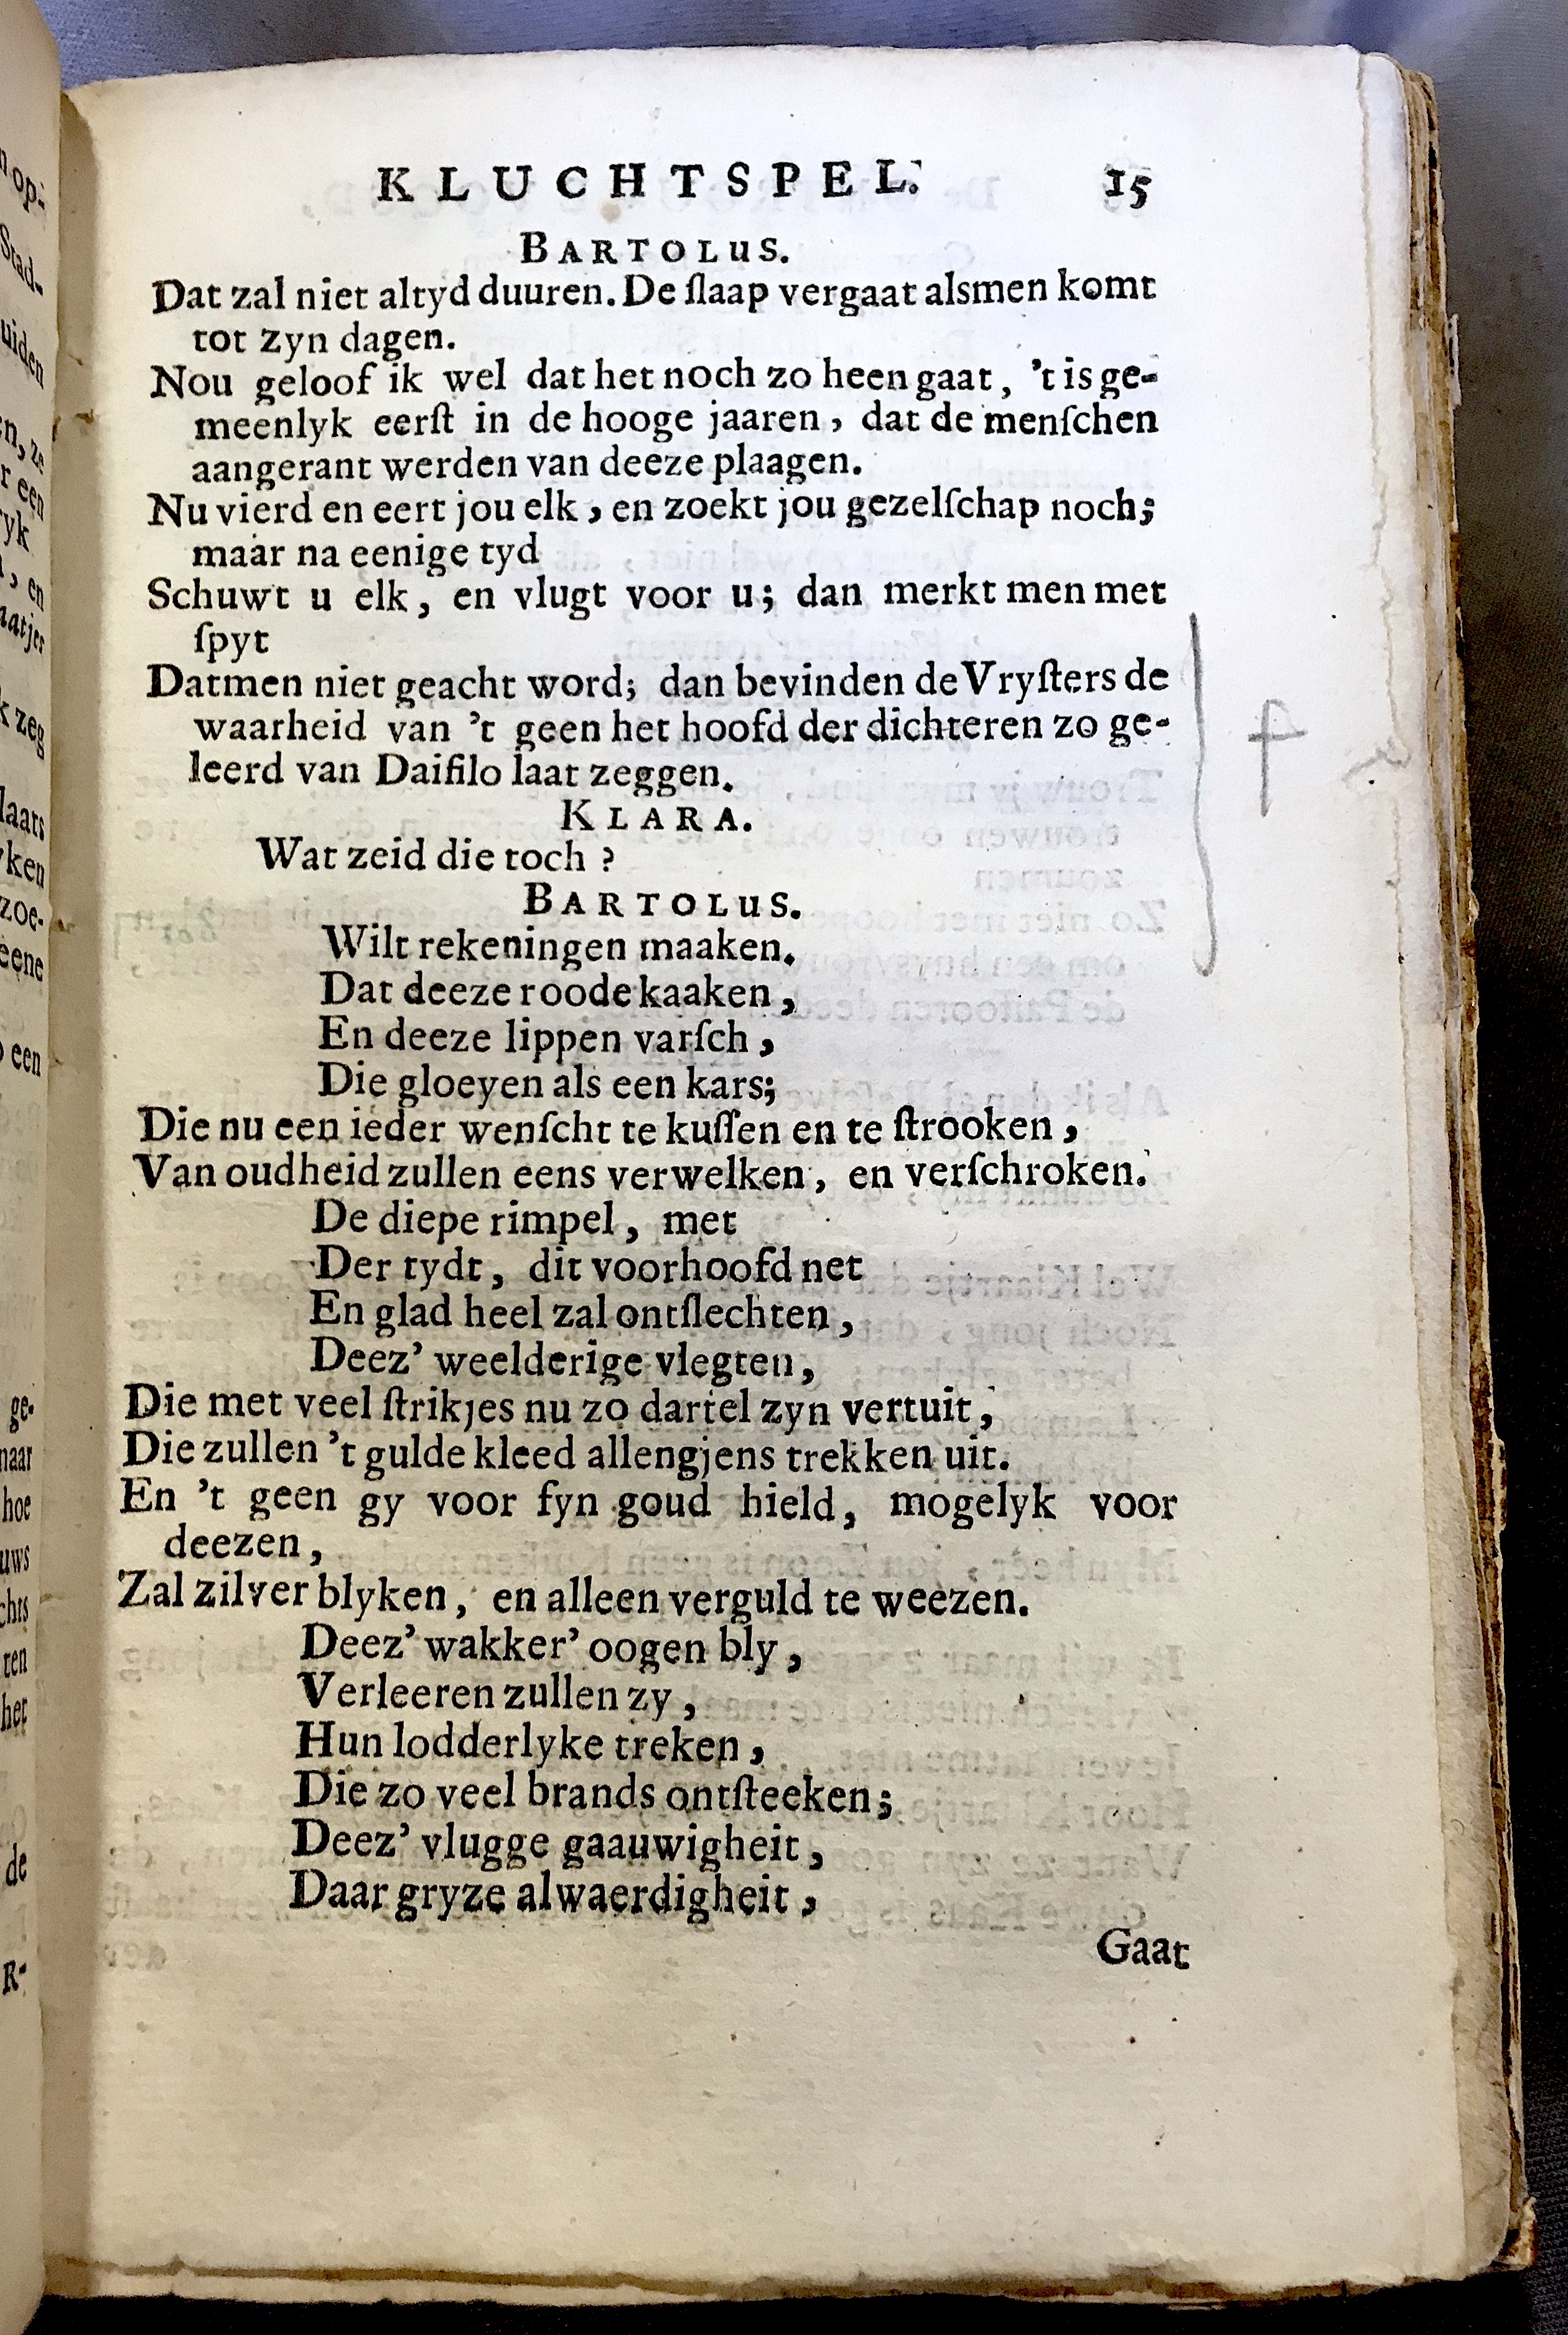 KLUCHTSPEL. 15
BARTOLUS.
Dat zal niet altyd duuren. De ſlaap vergaat alsmen komt
tot zyn dagen.
Nou geloof ik wel dat het noch zo heen gaat, 't is ge-
meenlyk eerſt in de hooge jaaren, dat de menſchen
aangerant werden van deeze plaagen.
Nu vierd en eert jou elk, en zoekt jou gezelſchap noch;
maar na eenige tyd
Schuwt u elk, en vlugt voor u; dan merkt men met
ſpyt
Datmen niet geacht word; dan bevinden de Vryſters de
waarheid van 't geen het hoofd der dichteren zo ge-
leerd van Daifilo laat zeggen.
KLARA.
Wat zeid die toch?
BARTOLUS.
Wilt rekeningen maaken.
Dat deeze roode kaaken,
En deeze lippen varſch,
Die gloeyen als een kars;
Die nu een ieder wenſcht te kuſſen en te ſtrooken,
Van oudheid zullen eens verwelken, en verſchroken.
De diepe rimpel, met
Der tydt, dit voorhoofd net
En glad heel zal ontſlechten,
Deez' weelderige vlegten,
Die met veel ſtrikjes nu zo dartel zyn vertuit,
Die zullen 't gulde kleed allengjens trekken uit.
En 't geen gy voor fyn goud hield, mogelyk voor
deezen,
Zal zilver blyken, en alleen verguld te weezen.
Deez' wakker' oogen bly,
Verleeren zullen zy,
Hun lodderlyke treken,
Die zo veel brands ontſteeken;
Deez' vlugge gaauwigheit,
Daar gryze alwaerdigheit,
Gaat